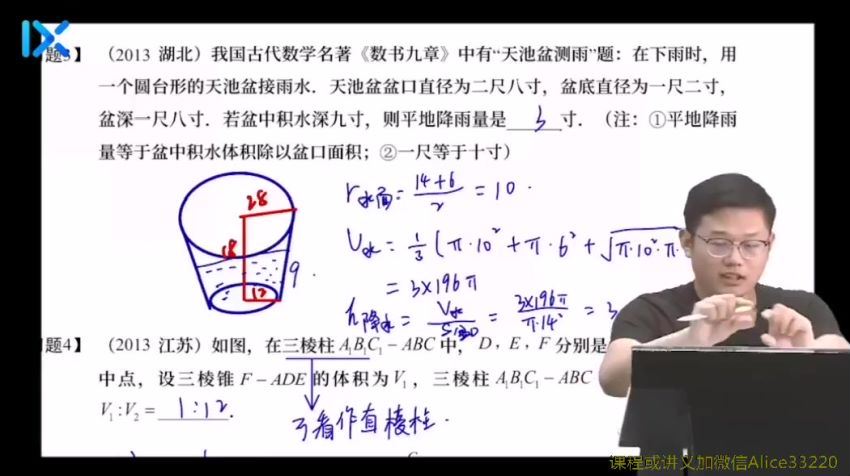 IX
题3】 (2013 湖北) 我国古代数学名著《数书九章》中有“天池盆测雨”题：在下雨时，用
一个圆台形的天池盆接雨水．天池盆盆口直径为二尺八寸，盆底直径为一尺二寸，
盆深一尺八寸．若盆中积水深九寸，则平地降雨量是 3 寸．(注：①平地降雨
量等于盆中积水体积除以盆口面积；②一尺等于十寸)
28
18
9.
12
r水面 = (14+6)/2 = 10.
V水 = 1/3 (π·10² + π·6² + √π·10²·π·
= 3×196π
h降水 = V水/S = 3×196π/π·14² = 3
题4】 (2013 江苏) 如图，在三棱柱 A₁B₁C₁ − ABC 中，D，E，F 分别是
中点，设三棱锥 F − ADE 的体积为 V₁，三棱柱 A₁B₁C₁ − ABC
V₁:V₂ = 1:12.
可看作直棱柱.
课程或讲义加微信Alice33220